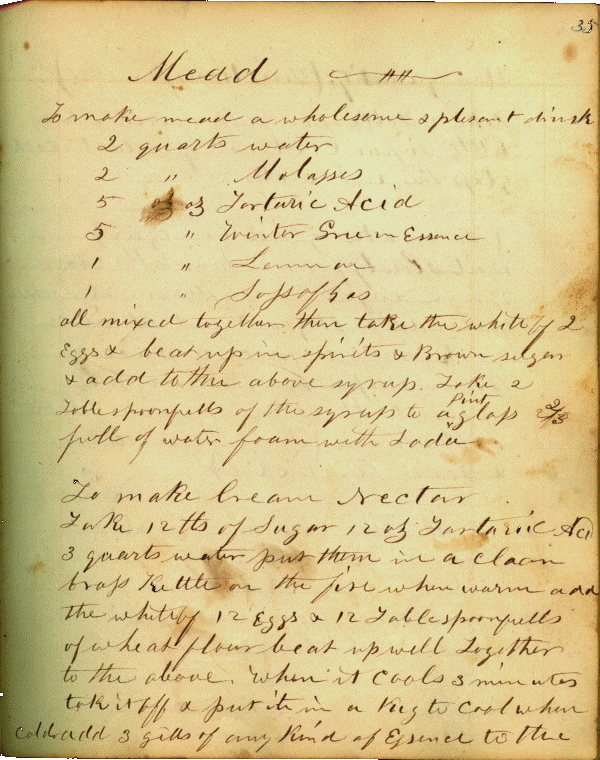 35
Mead
To make mead a wholesome & plesant drink
2 quarts water
2 " Molasses
5 oz oz Tartaric Acid
5 " Winter Green Essence
1 " Lemmon
1 " Sassofras
all mixed together then take the white of 2
Eggs & beat up in spirits & Brown sugar
& add to the above syrup. Take 2
Tablespoonfulls of the syrup to a Pint glass 2/3
full of water foam with Soda
To make Cream Nectar
Take 12 lbs of Sugar 12 oz Tartaric Acid
3 quarts water put them in a clean
brass Kettle on the fire when warm add
the white of 12 Eggs & 12 Tablespoonfulls
of wheat flour beat up well Together
to the above. When it Cools 3 minutes
take it off & put it in a Keg to Cool when
Cold add 3 gills of any Kind of Essence to the